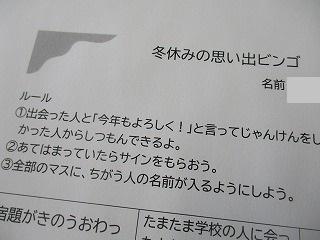 冬休みの思い出ビンゴ
名前
ルール
①出会った人と「今年もよろしく!」と言ってじゃんけんをし
かった人からしつもんできるよ。
②あてはまっていたらサインをもらおう。
③全部のマスに、ちがう人の名前が入るようにしよう。
宿題がきのうおわっ
たまたま学校の人に会っ